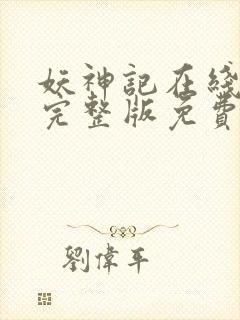 妖神記在綫
完整版免費
劉偉平